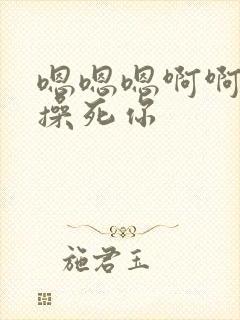 嗯嗯嗯啊啊
操死你
施君玉